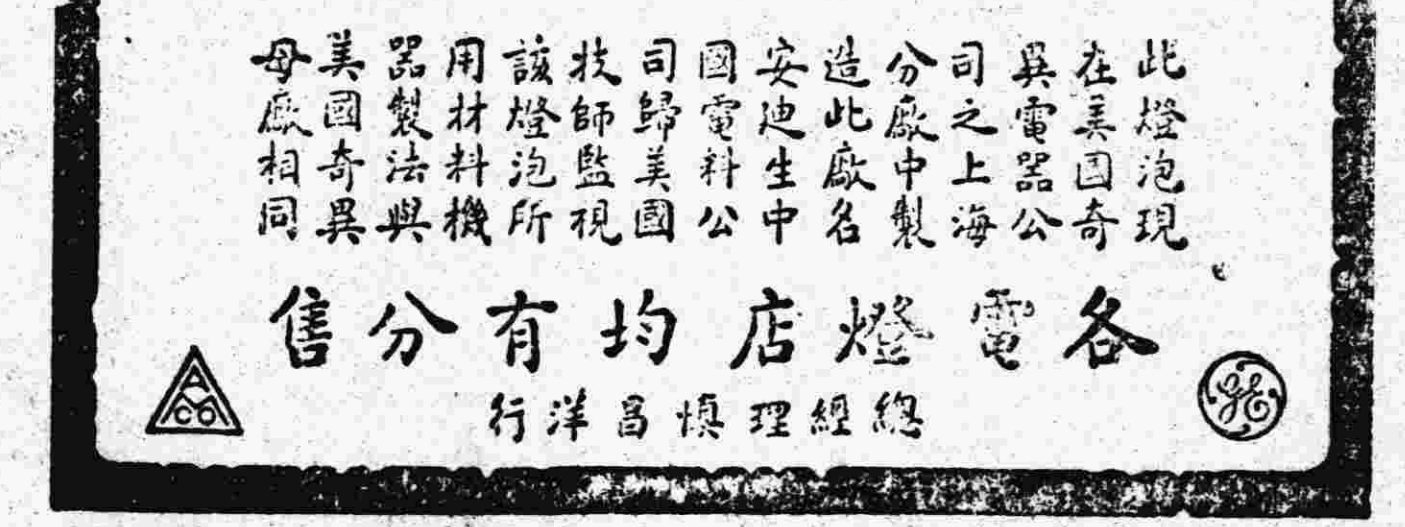 此燈泡現
在美国奇
異電器公
司之上海
分廠中製
造此廠名
安迪生中
國電料公
司歸美國
技師監視
該燈泡所
用材料機
器製法與
美國奇異
母廠相同
各電燈店均有分售
總經理慎昌洋行
GE
A
CO